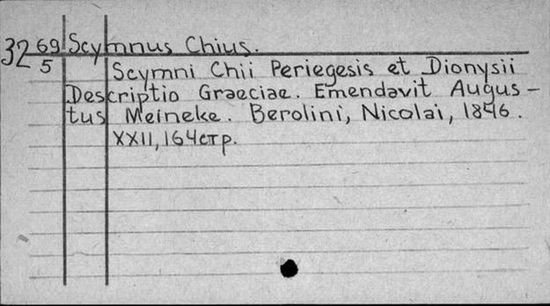 32 69/5 Scymnus Chius.
Scymni Chii Periegesis et Dionysii
Descriptio Graeciae. Emendavit Augus-
tus Meineke. Berolini, Nicolai, 1846.
XXII, 164стр.